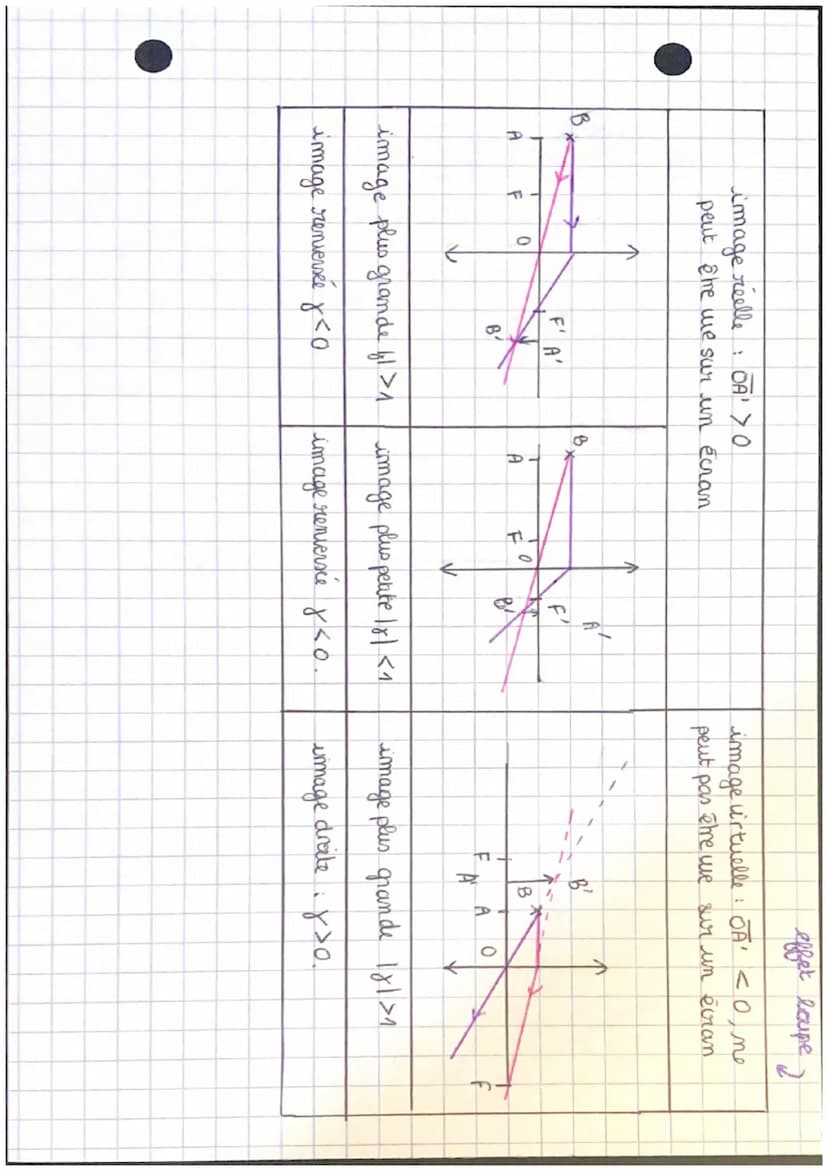 effet loupe
image réelle : OA' > 0
peut être vue sur un écran
image virtuelle : OA' < 0, ne
peut pas être vue sur un écran
B
A
F
O
F'
A'
B'
B
A
F
O
F'
A'
B'
B'
B
F
A'
A
O
F
image plus grande |γ| > 1
image plus petite |γ| < 1
image plus grande |γ| > 1
image renversée γ < 0
image renversée γ < 0.
image droite : γ > 0.